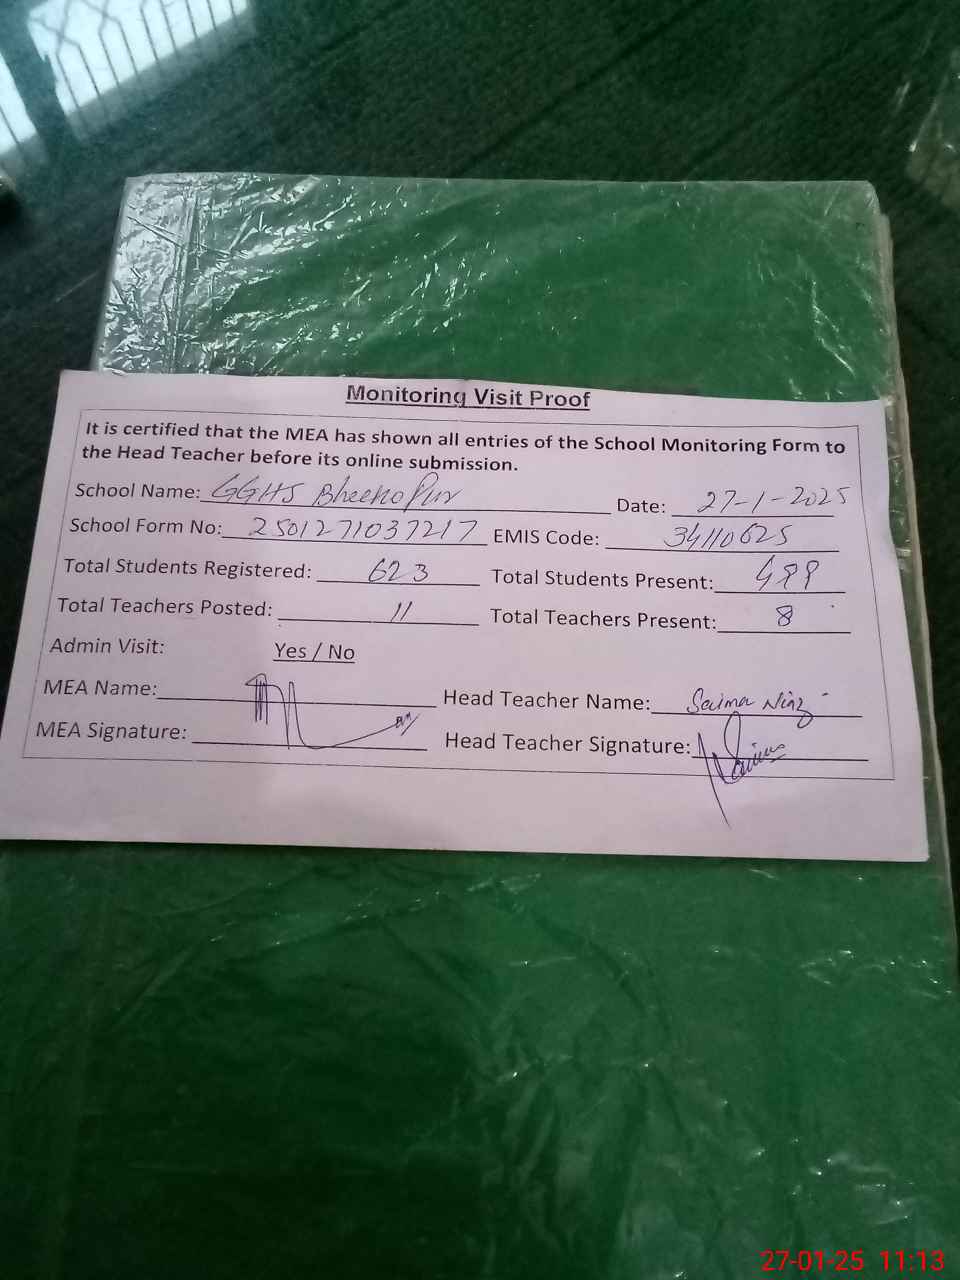 Monitoring Visit Proof
It is certified that the MEA has shown all entries of the School Monitoring Form to
the Head Teacher before its online submission.
School Name: GGHS Bheeko Pur Date: 27-1-2025
School Form No: 2501271037217 EMIS Code: 34110625
Total Students Registered: 623 Total Students Present: 499
Total Teachers Posted: 11 Total Teachers Present: 8
Admin Visit: Yes / No
MEA Name: Head Teacher Name: Saima Niaz
MEA Signature: Head Teacher Signature: Saima
27-01-25 11:13